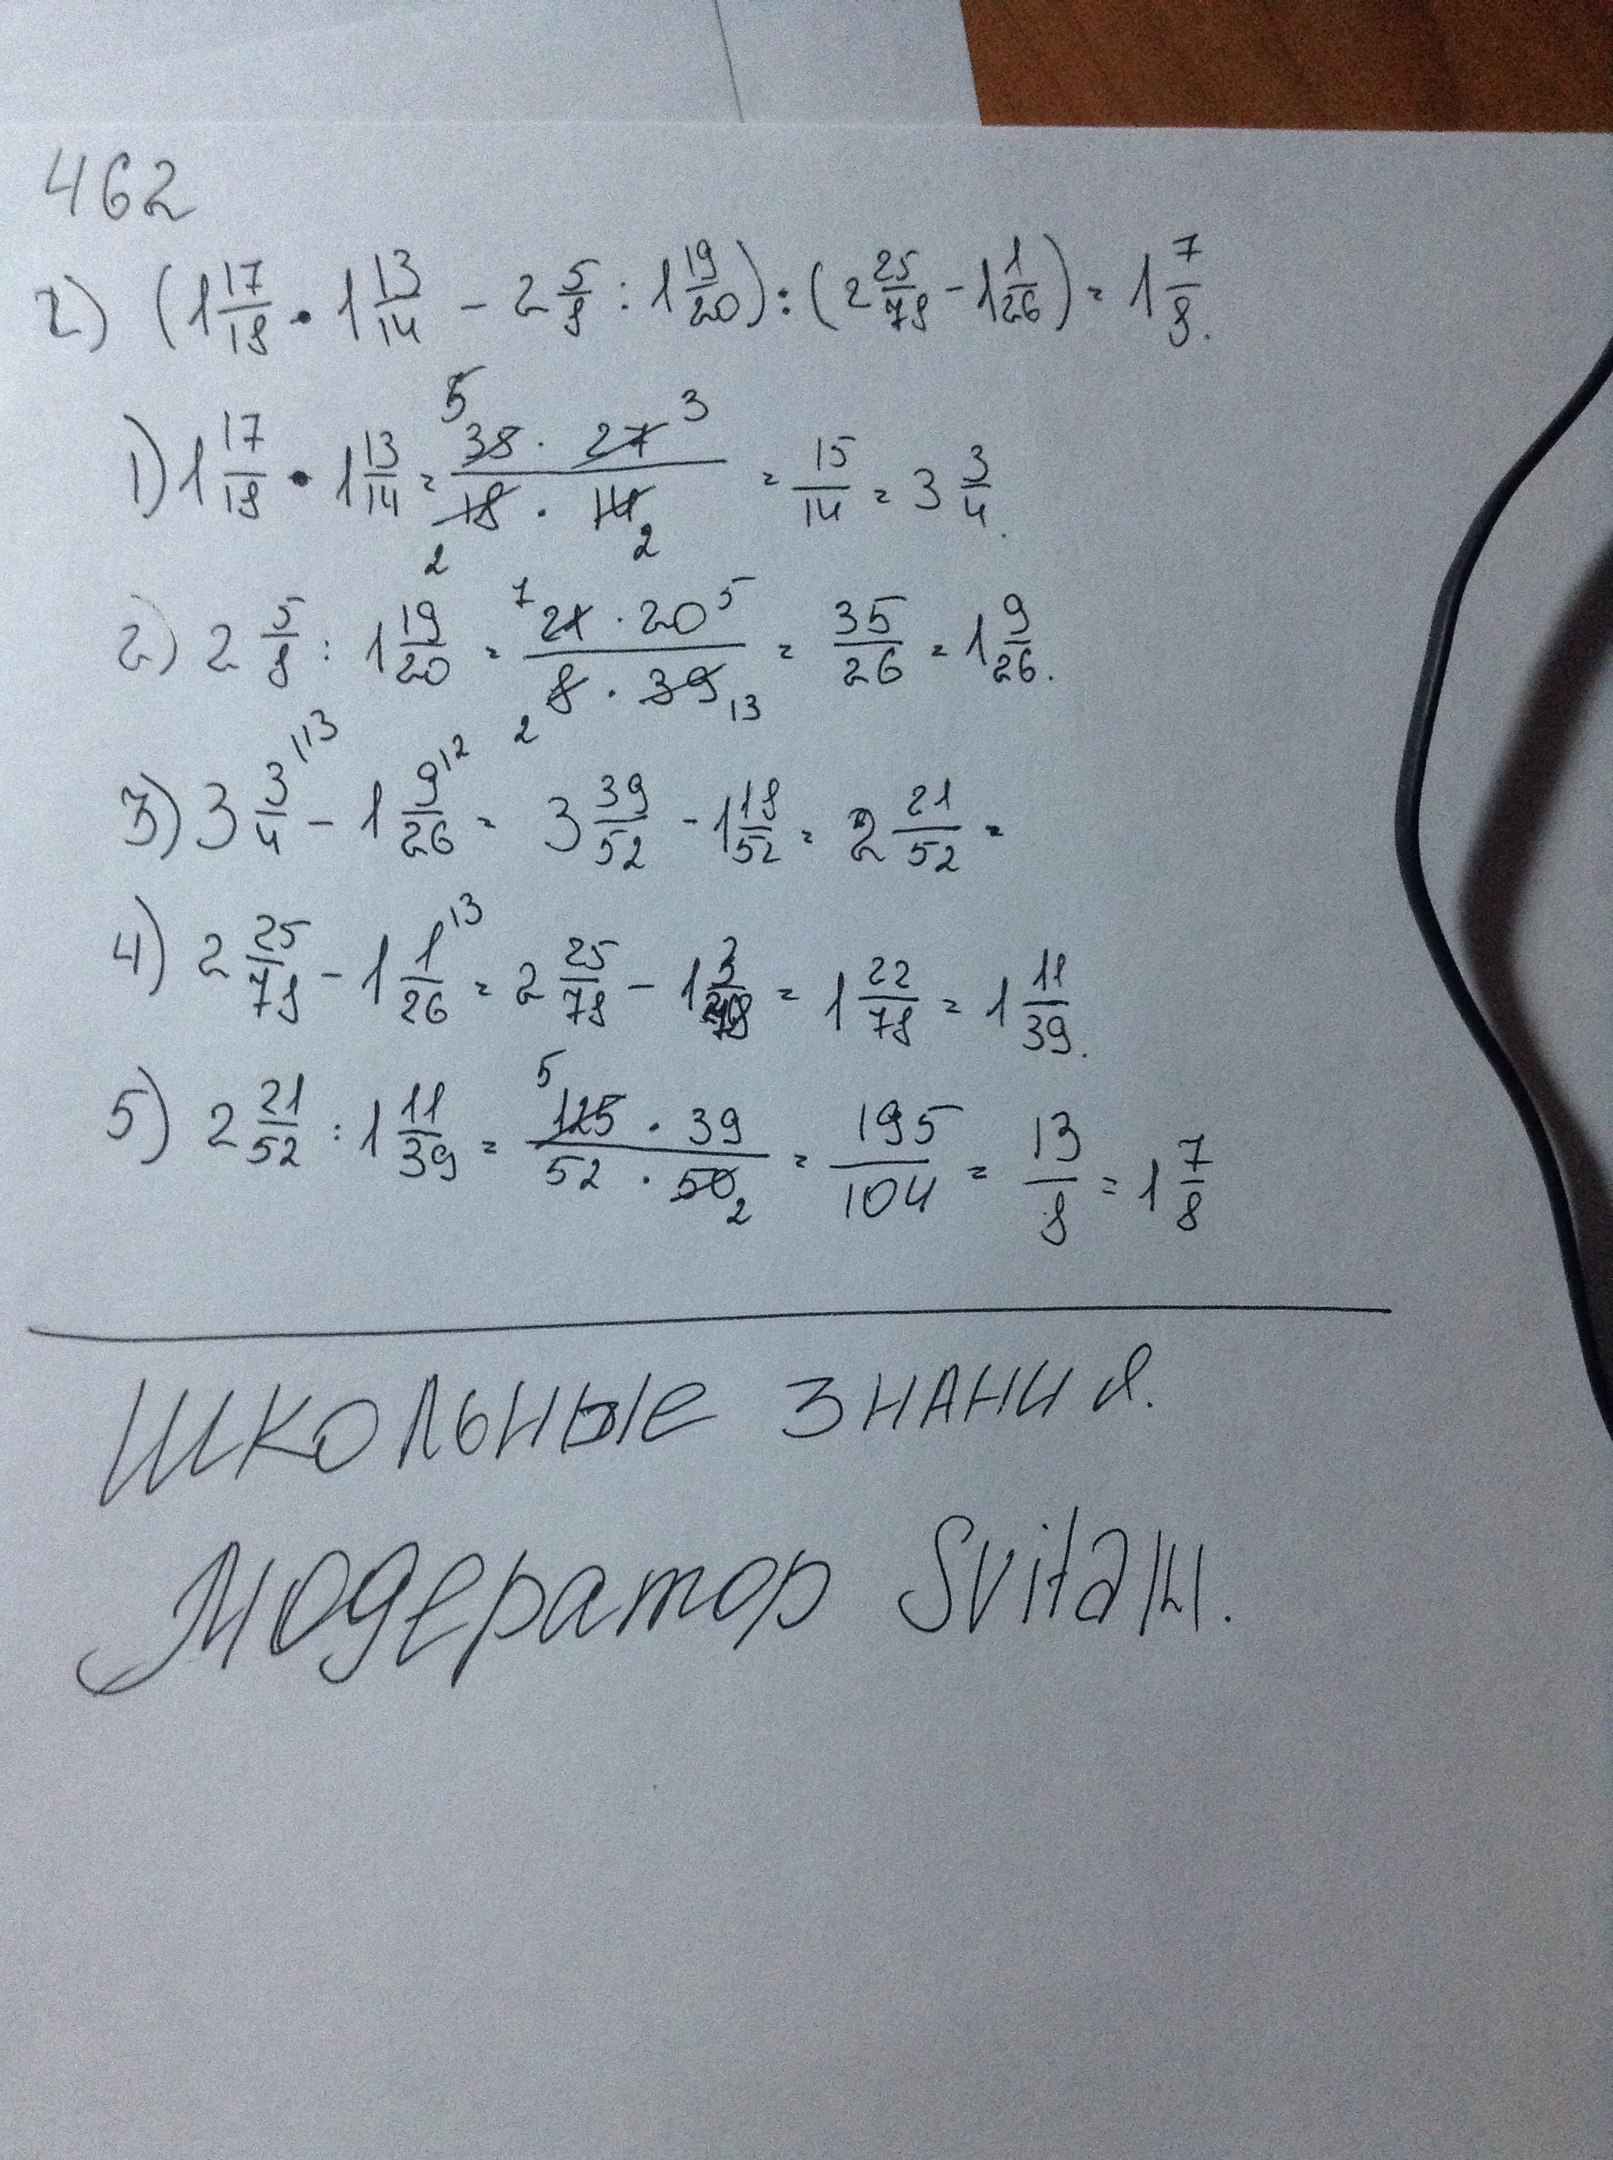 462
2) (1 17/18 · 1 13/14 - 2 5/8 : 1 19/20) : (2 25/78 - 1 1/26) = 1 7/8.
1) 1 17/18 · 1 13/14 = 5 38 · 27 3 / 2 18 · 14 2 = 15/14 = 3 3/4.
2) 2 5/8 : 1 19/20 = 7 21 · 20 5 / 2 8 · 39 13 = 35/26 = 1 9/26.
3) 3 3/4 \13 - 1 9/26 \2 = 3 39/52 - 1 18/52 = 2 21/52 =
4) 2 25/78 - 1 1/26 \3 = 2 25/78 - 1 3/78 = 1 22/78 = 1 11/39.
5) 2 21/52 : 1 11/39 = 5 125 · 39 / 52 · 50 2 = 195/104 = 13/8 = 1 7/8
школьные знания.
Модератор